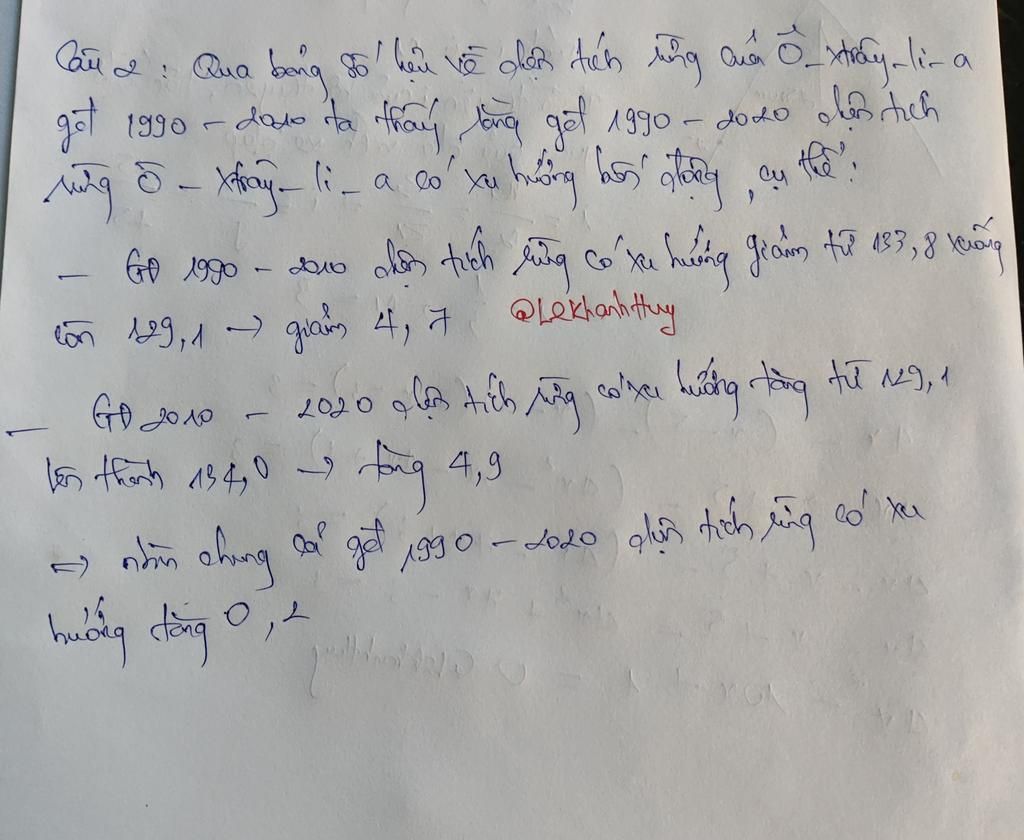 Câu 2: Qua bảng số liệu về diện tích rừng của Ô-xtrây-li-a
gđ 1990 - 2020 ta thấy rằng gđ 1990 - 2020 diện tích
rừng Ô - xtrây - li - a có xu hướng biến động, cụ thể:
- GĐ 1990 - 2010 diện tích rừng có xu hướng giảm từ 133,8 xuống
còn 129,1 → giảm 4,7
@LeKhanhHuy
- GĐ 2010 - 2020 diện tích rừng có xu hướng tăng từ 129,1
lên thành 134,0 → tăng 4,9
=> nhìn chung cả gđ 1990 - 2020 diện tích rừng có xu
hướng tăng 0,2